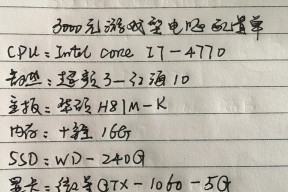 3000元游戏型电脑配置单
CPU：Intel core I7-4770
散热：超频3-红海10
主板：华硕H81M-K
内存：十铨16G
SSD：WD-240G
显卡：微星GTX-1060-5G